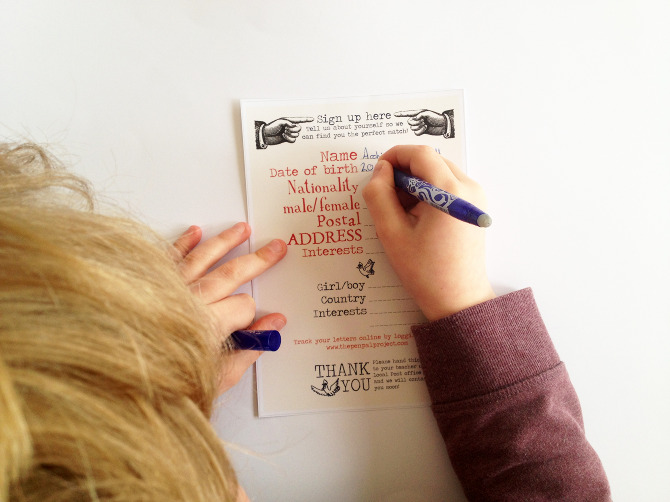 Sign up here
Tell us about yourself so we
can find you the perfect match!
Name
Date of birth 20
Nationality
male/female
Postal
ADDRESS
Interests
Girl/boy
Country
Interests
Track your letters online by
www.thepenpalproject.com
THANK YOU
Please hand this
to your teacher
local Post office
and we will
you soon!